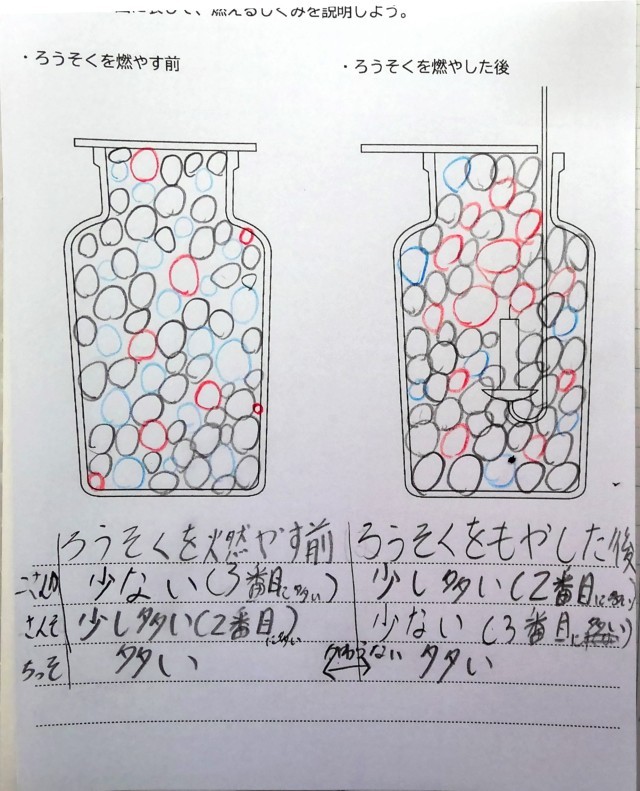 燃えるしくみを説明しよう。
・ろうそくを燃やす前
・ろうそくを燃やした後
ろうそくを燃やす前 ろうそくをもやした後
少ない(3番目に多い) 少し多い(2番目に多い)
さんそ 少し多い(2番目に多い) 少ない(3番目に
ちっそ 多い かわらない 多い